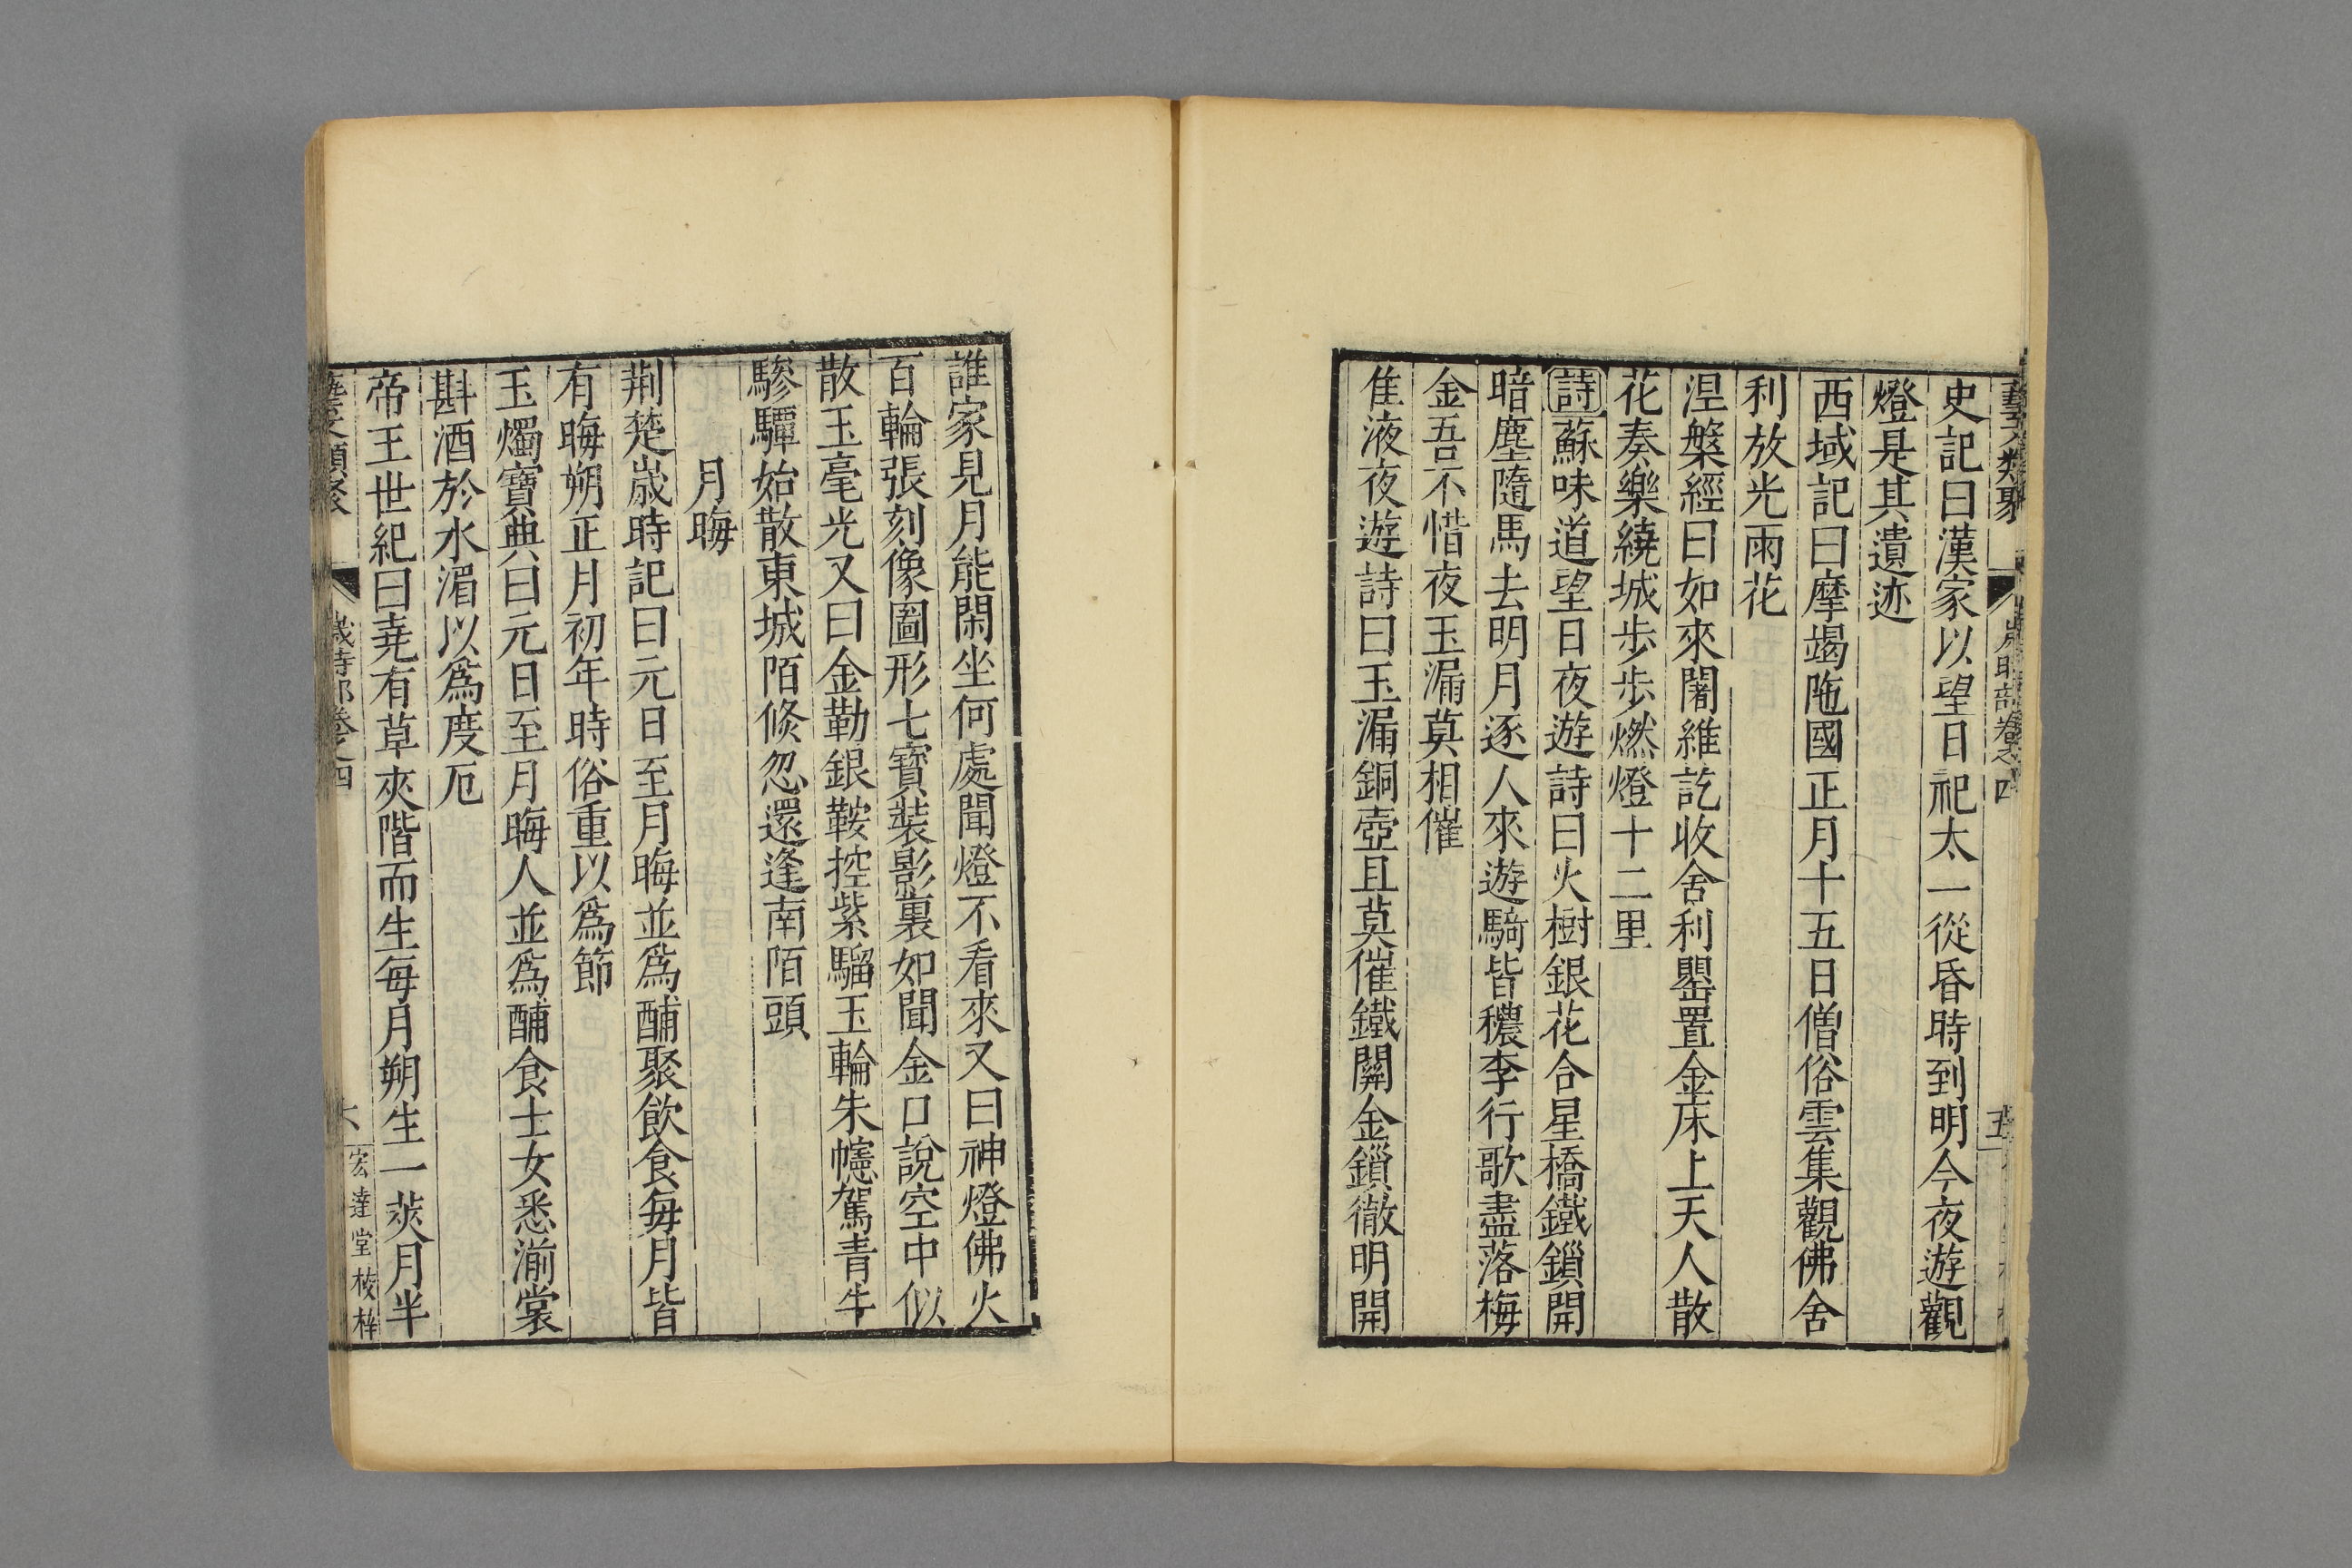 藝文類聚 歲時部卷之四 五
史記曰漢家以望日祀太一從昏時到明今夜遊觀
燈是其遺迹
西域記曰摩竭陁國正月十五日僧俗雲集觀佛舍
利放光雨花
涅槃經曰如來闍維訖收舍利罌置金床上天人散
花奏樂繞城步步燃燈十二里
詩蘇味道望日夜遊詩曰火樹銀花合星橋鐵鎖開
暗塵隨馬去明月逐人來遊騎皆穠李行歌盡落梅
金吾不惜夜玉漏莫相催
隹液夜遊詩曰玉漏銅壺且莫催鐵關金鎖徹明開
誰家見月能閑坐何處聞燈不看來又曰神燈佛火
百輪張刻像圖形七寶裝影裏如聞金口說空中似
散玉毫光又曰金勒銀鞍控紫騮玉輪朱幰駕青牛
驂驔始散東城陌倐忽還逢南陌頭
月晦
荆楚歲時記曰元日至月晦並爲酺聚飲食每月皆
有晦朔正月初年時俗重以爲節
玉燭寶典曰元日至月晦人並爲酺食士女悉湔裳
斟酒於水湄以爲度厄
帝王世紀曰堯有草夾階而生每月朔生一莢月半
藝文類聚 歲時部卷之四 六 宏達堂校梓